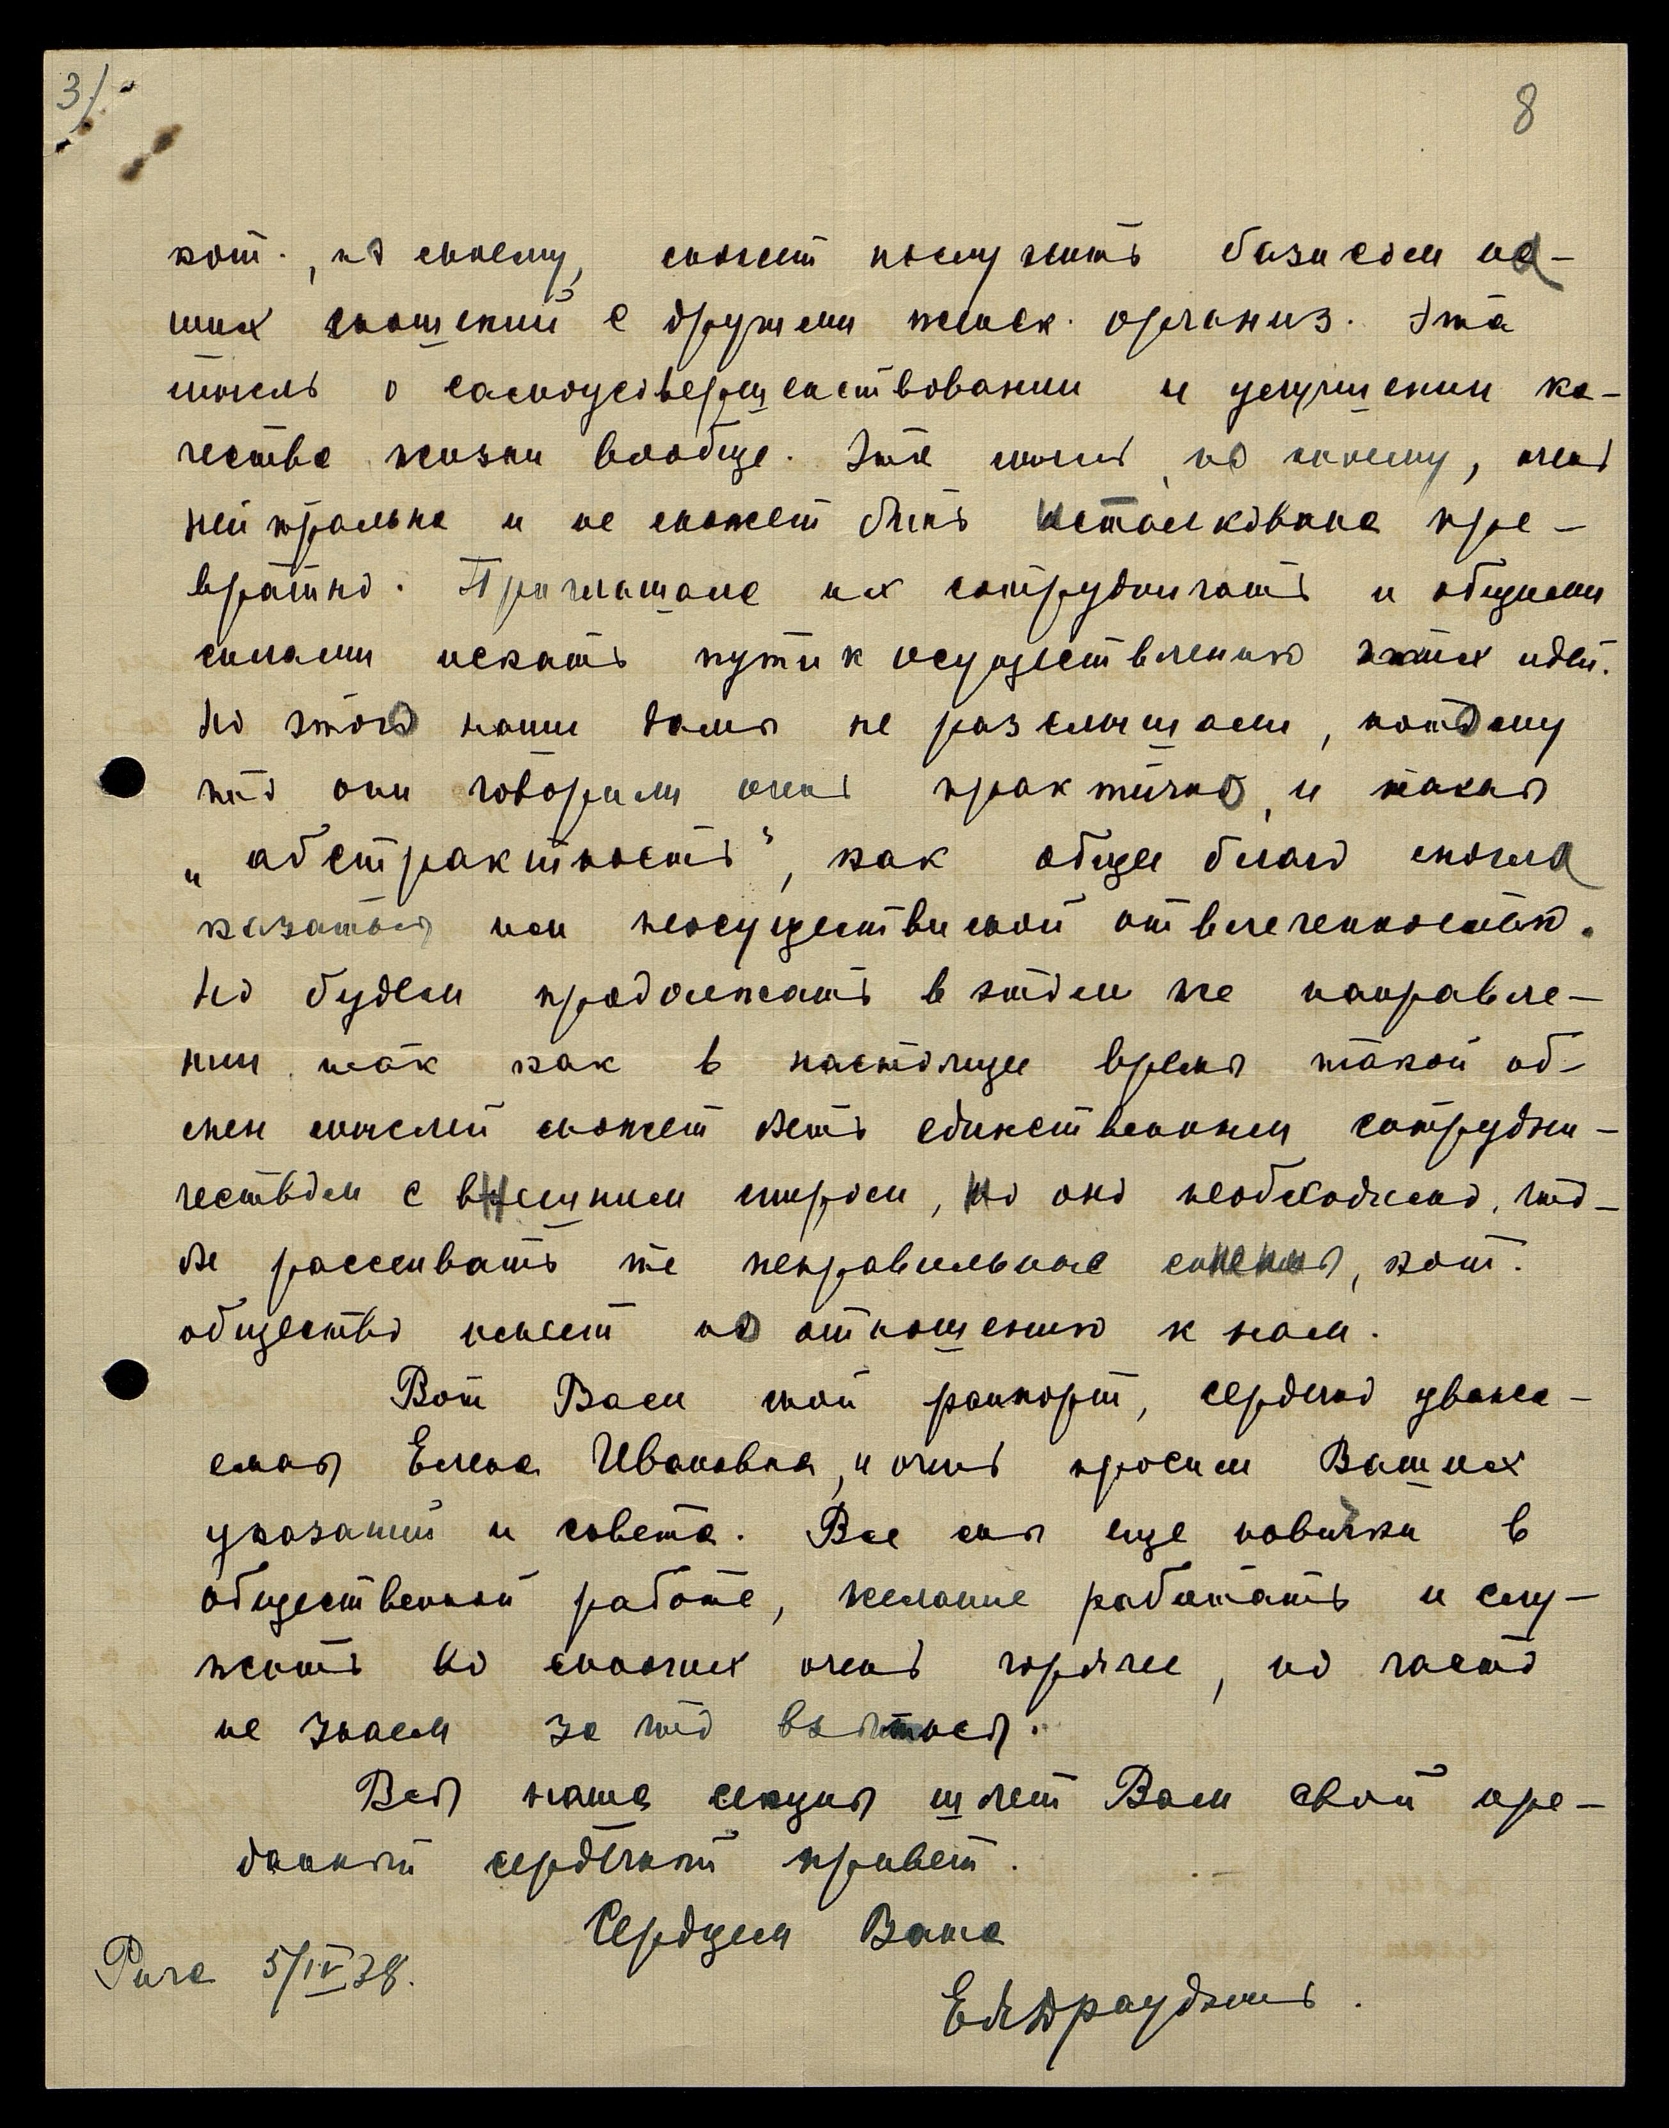 3/
8
кот., по моему, может послужить базисом на-
ших сношений с другими женск. организ. Эта
мысль о самоусовершенствовании и улучшении ка-
чества жизни вообще. Эта мысль, по моему, очень
нейтральна и не может быть истолкована пре-
вратно. Приглашаю их сотрудничать и общими
силами искать пути к осуществлению этих идей.
Но этого наши дамы не расслышали, потому
что они говорили очень практично, и такая
„абстрактность", как общее благо могла
казаться им неосуществимой отвлеченностью.
Но будем продолжать в этом же направле-
нии так как в настоящее время такой об-
мен мыслей может быть единственным сотрудни-
чеством с внешним миром, но оно необходимо, что-
бы рассеивать те неправильные мнения, кот.
общество имеет по отношению к нам.
Вот Вам мой рапорт, сердечно уважа-
емая Елена Ивановна, и очень просим Ваших
указаний и совета. Все мы еще новички в
общественной работе, желание работать и слу-
жить во многих очень горячее, но часто
не знаем за что взяться.
Вся наша секция шлет Вам свой пре-
данный сердечный привет.
Сердцем Ваша
Рига 5/IV 38.
Ел Драудзинь.